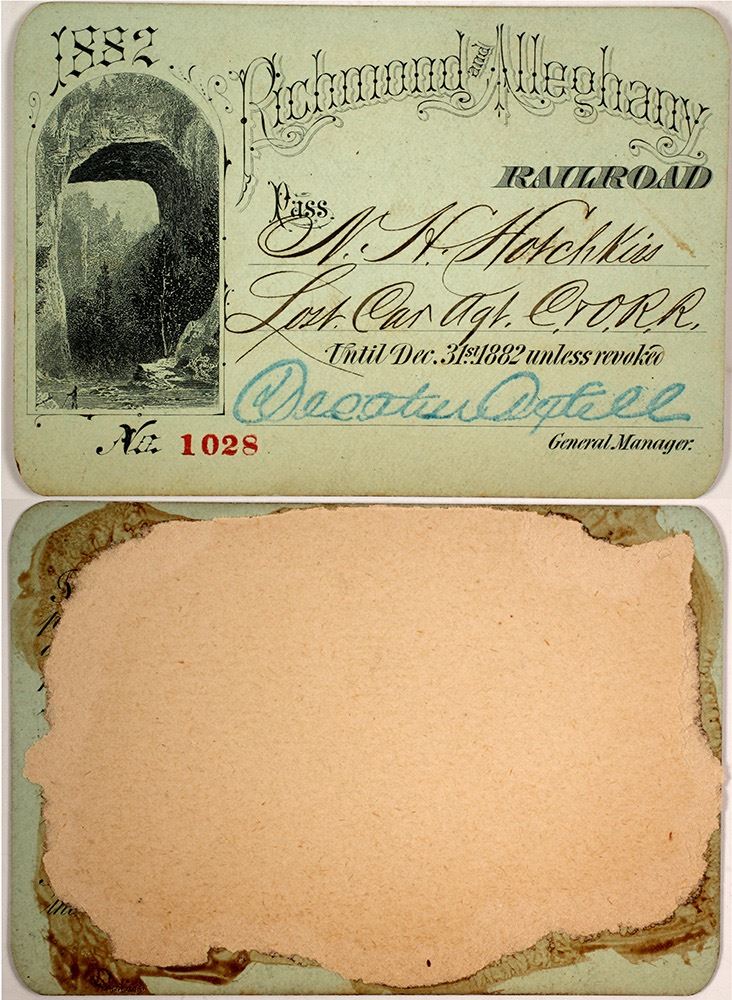 1882
Richmond and Alleghany
RAILROAD
Pass
N. H. Hotchkiss
Lost Car Agt. C & O. R. R.
Until Dec. 31st 1882 unless revoked
Decatur Axtell
No. 1028
General Manager.
the